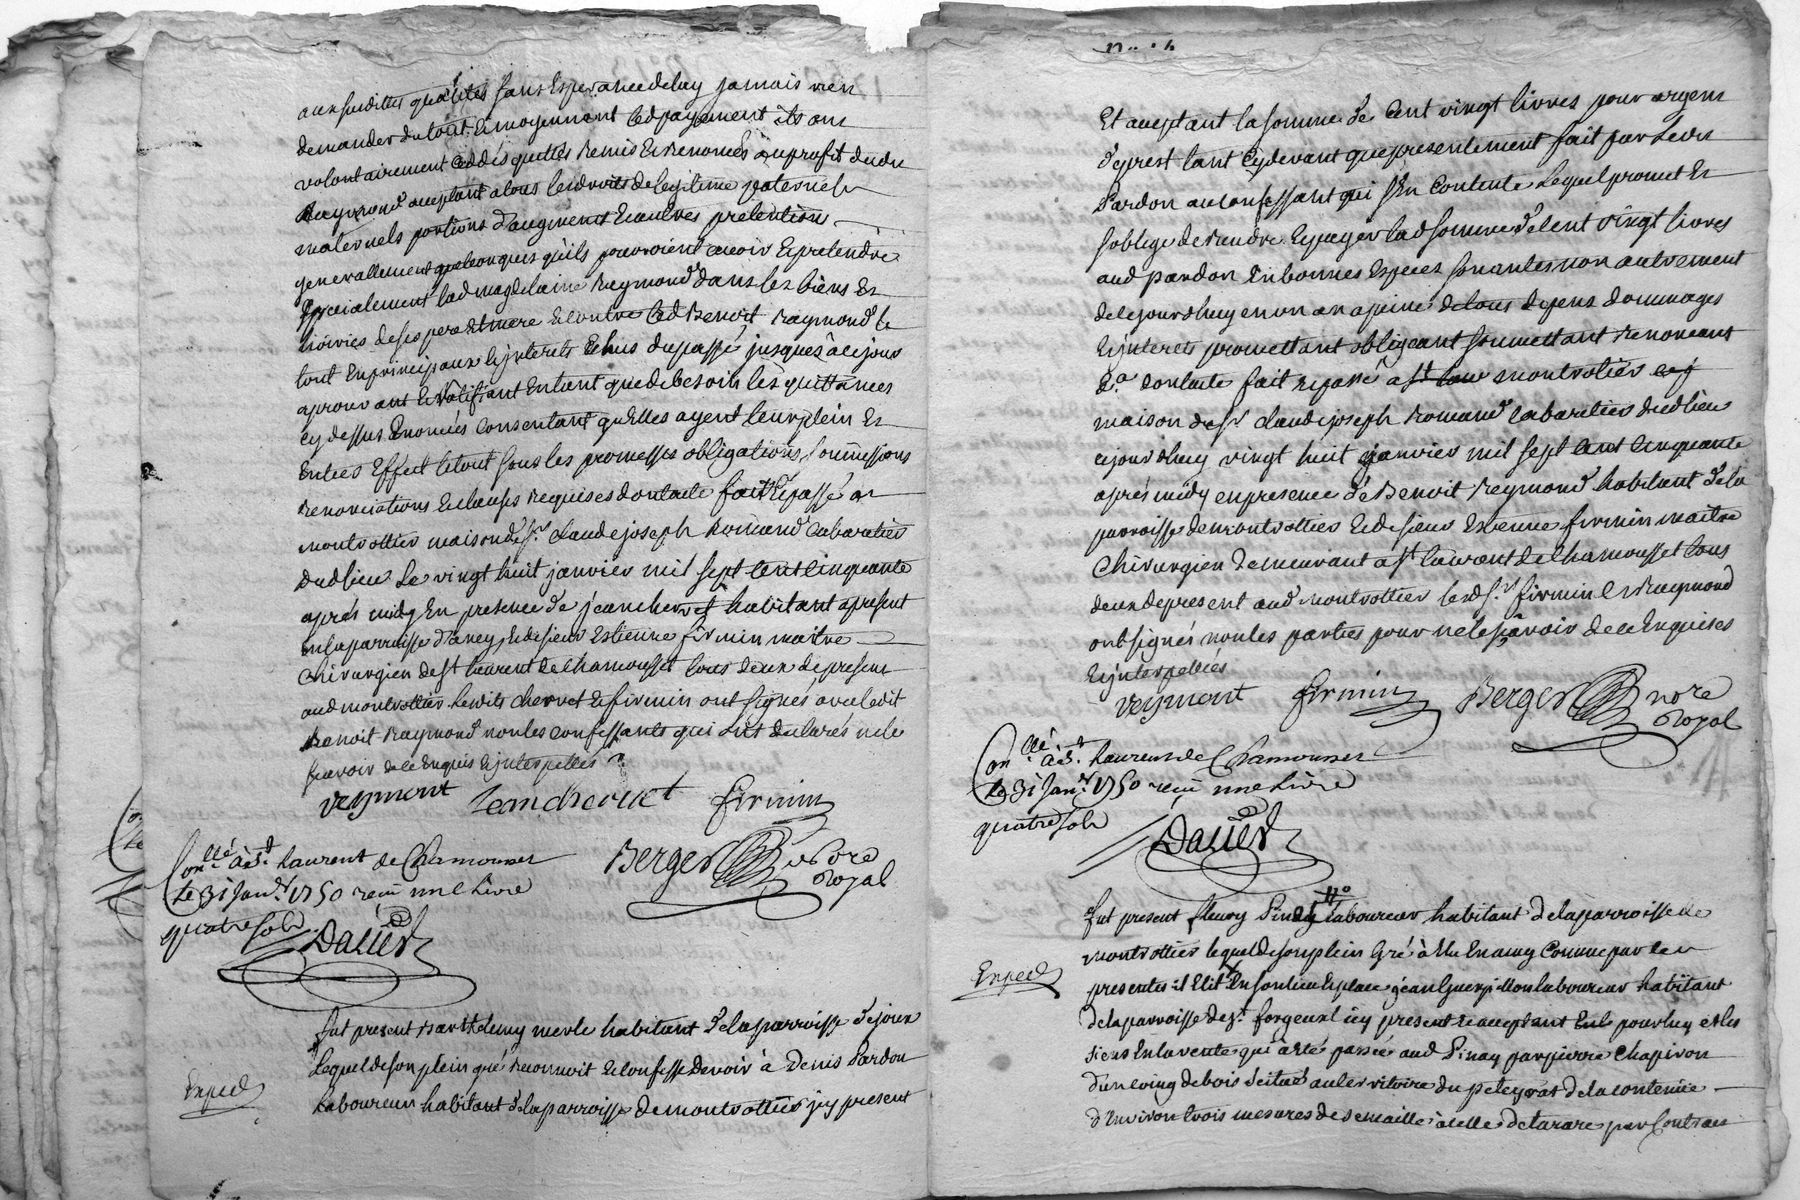 aux susdittes qualités sans Esperance de luy jamais rien
demander du tout. Et moyennant led payement ils ont
volontairement Ceddés quittés Remis Et Renoncés au profit dudit
Raymond acceptant a tous les droits de legitime paternels
maternels portions d'augment Et autres pretentions
generallement quelconques qu'ils pourroient avoir Et pretendre
specialement lad magdelaine Raymond dans les biens Et
hoiries de ses pere Et mere Et contre led Benoit Raymond le
tout En principaux Et jnterets Echus du passé jusques à ce jour
aprouvant Et Ratifiant En tant que de besoin les quittances
cy dessus Enoncées Consentant qu'Elles ayent leur plein Et
Entier Effect le tout sous les promesses obligations, soumissions
Renonciations Et clauses Requises dont acte fait Et passé au
montrottier maison de Sr. claude joseph Romand Cabaretier
dudlieu Le vingt huit janvier mil sept cent cinquante
aprés midy En presence de jean chervet habitant a present
en la parroisse d'ancy, Et de sieur Estienne firmin maitre
chirurgien de st laurent de chamousset tous deux de present
aud montrottier. Lesdits chervet Et firmin ont signés avec ledit
Benoit Raymond non les confessants qui ont declarés ne le
scavoir de ce Enquis Et jnterpellés
reymont Jean chervet firmin
Conllé à St. Laurent de Chamousset
le 31 Janer 1750 reçu une Livre
quatre sols
Dauier
Berger nore
Royal
fut present Barthelemy merle habitant de la parroisse de joux
Lequel de son plein gré Reconnoit Et confesse devoir à Denis Pardon
Laboureur habitant de la parroisse de montrottier jcy present
Exped
Et acceptant la somme de Cent vingt livres pour argent
de prest tant Cy devant que presentement fait par ledit
Pardon au confessant qui s'En Contente Lequel promet Et
s'oblige de Rendre Et payer lad somme de Cent vingt livres
aud pardon En bonnes Especes sonantes non autrement
de ce jourdhuy en un an a peine de tous depens dommages
Et jnterets promettant obligeant soumettant Renonceant
Et.a dont acte fait Et passé a montrottier
maison de Sr claude joseph Romand Cabaretier dudlieu
cejourdhuy vingt huit janvier mil sept cent cinquante
aprés midy en presence de Benoit Reymond habitant de la
parroisse de montrottier Et de sieur Estienne firmin maitre
Chirurgien demeurant a st laurent de Chamousset tous
deux de present aud montrottier lesd sr. firmin Et Raymond
ont signés non les parties pour ne le scavoir de ce Enquises
Et jnterpellées
reymont firmin Berger nore
Royal
Conllé à St. Laurent de Chamousset
le 31 Janr 1750 reçu une Livre
quatre sols
Dauier
fut present fleury Pinay Laboureur habitant de la parroisse de
montrottier lequel de son plein Gré à Elu En amy Comme par les
presentes il Elit En son lieu Et place jean Guerpillon laboureur habitant
de la parroisse de st. forgeux jcy present Et acceptant pour luy et les
siens En la vente qui à Eté passée aud Pinay par pierre Chapiron
d'un coing de bois scitué au territoire du de la contenüe
d'Environ trois mesures de semaille à celle de tarare par Contract
Exped